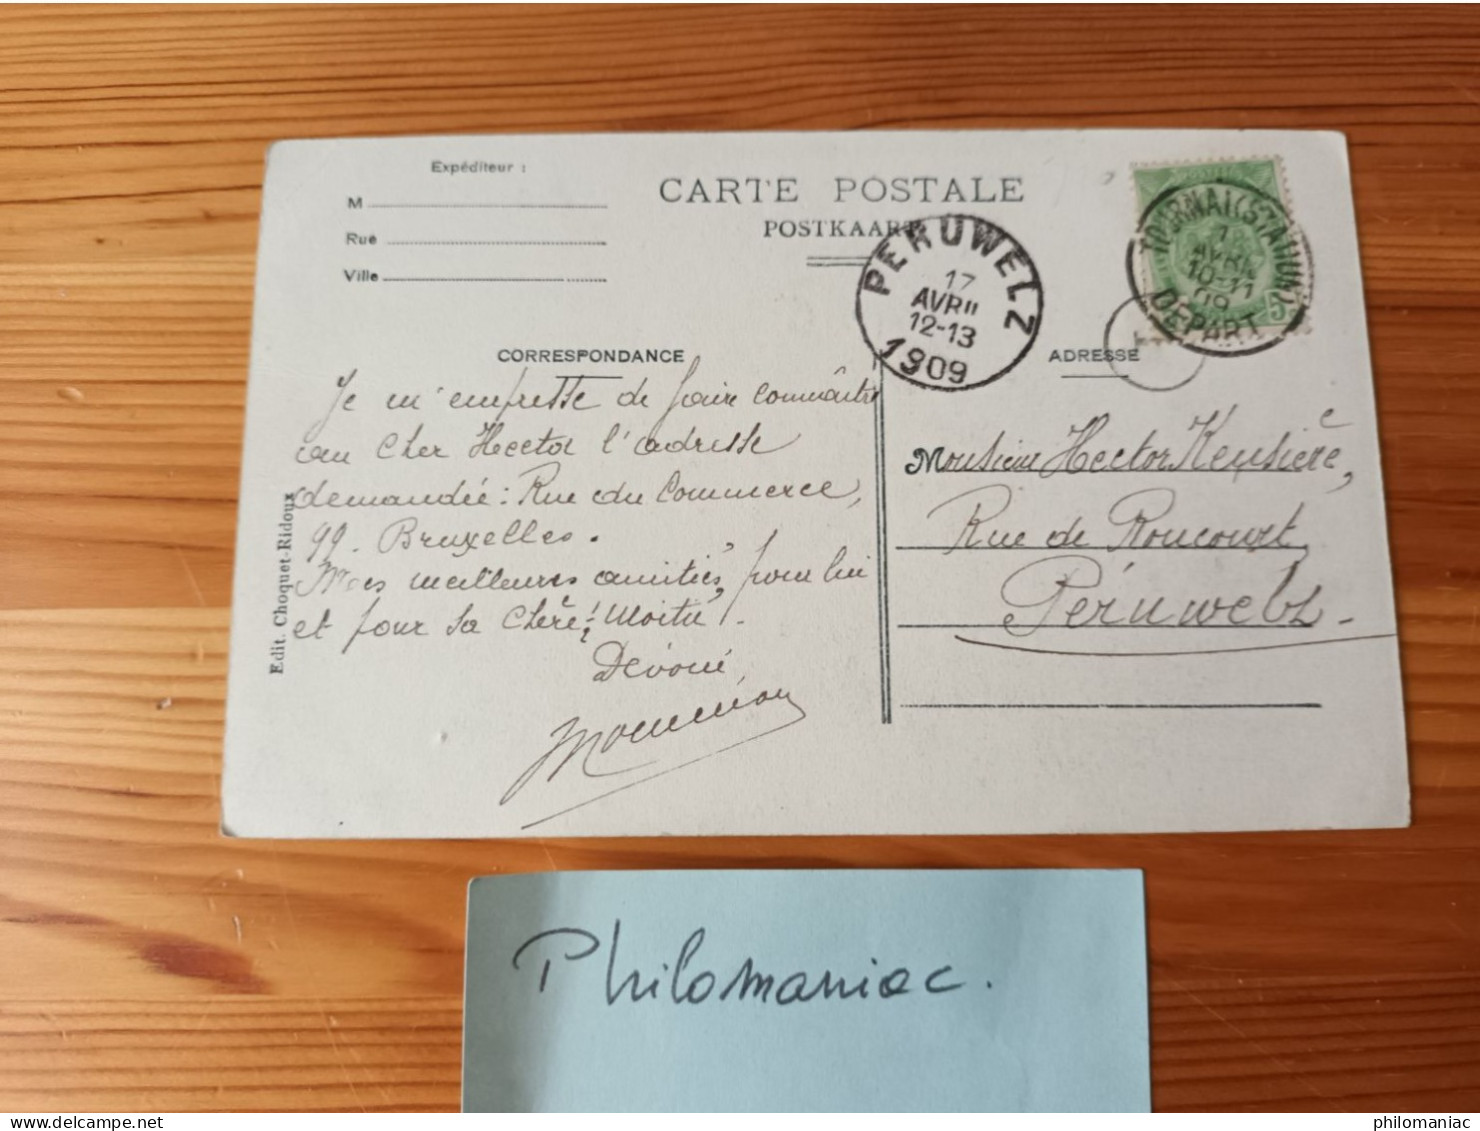 Expéditeur :
M
Rue
Ville
CARTE POSTALE
POSTKAART
PERUWELZ
17
AVRIL
12-13
1909
TOURNAI (STATION)
AVRIL
10-11
09
DÉPART
5
CORRESPONDANCE
ADRESSE
Je m'empresse de faire connaître
au Cher Hector l'adresse
demandée : Rue du Commerce,
99. Bruxelles.
Mes meilleures amitiés, pour lui
et pour sa Chère ! Moitié.
Dévoué,
Monsieur Hector
Rue de Roucourt
Péruwelz.
Edit. Choquet-Ridoux
Philomaniac.
www.delcampe.net
philomaniac